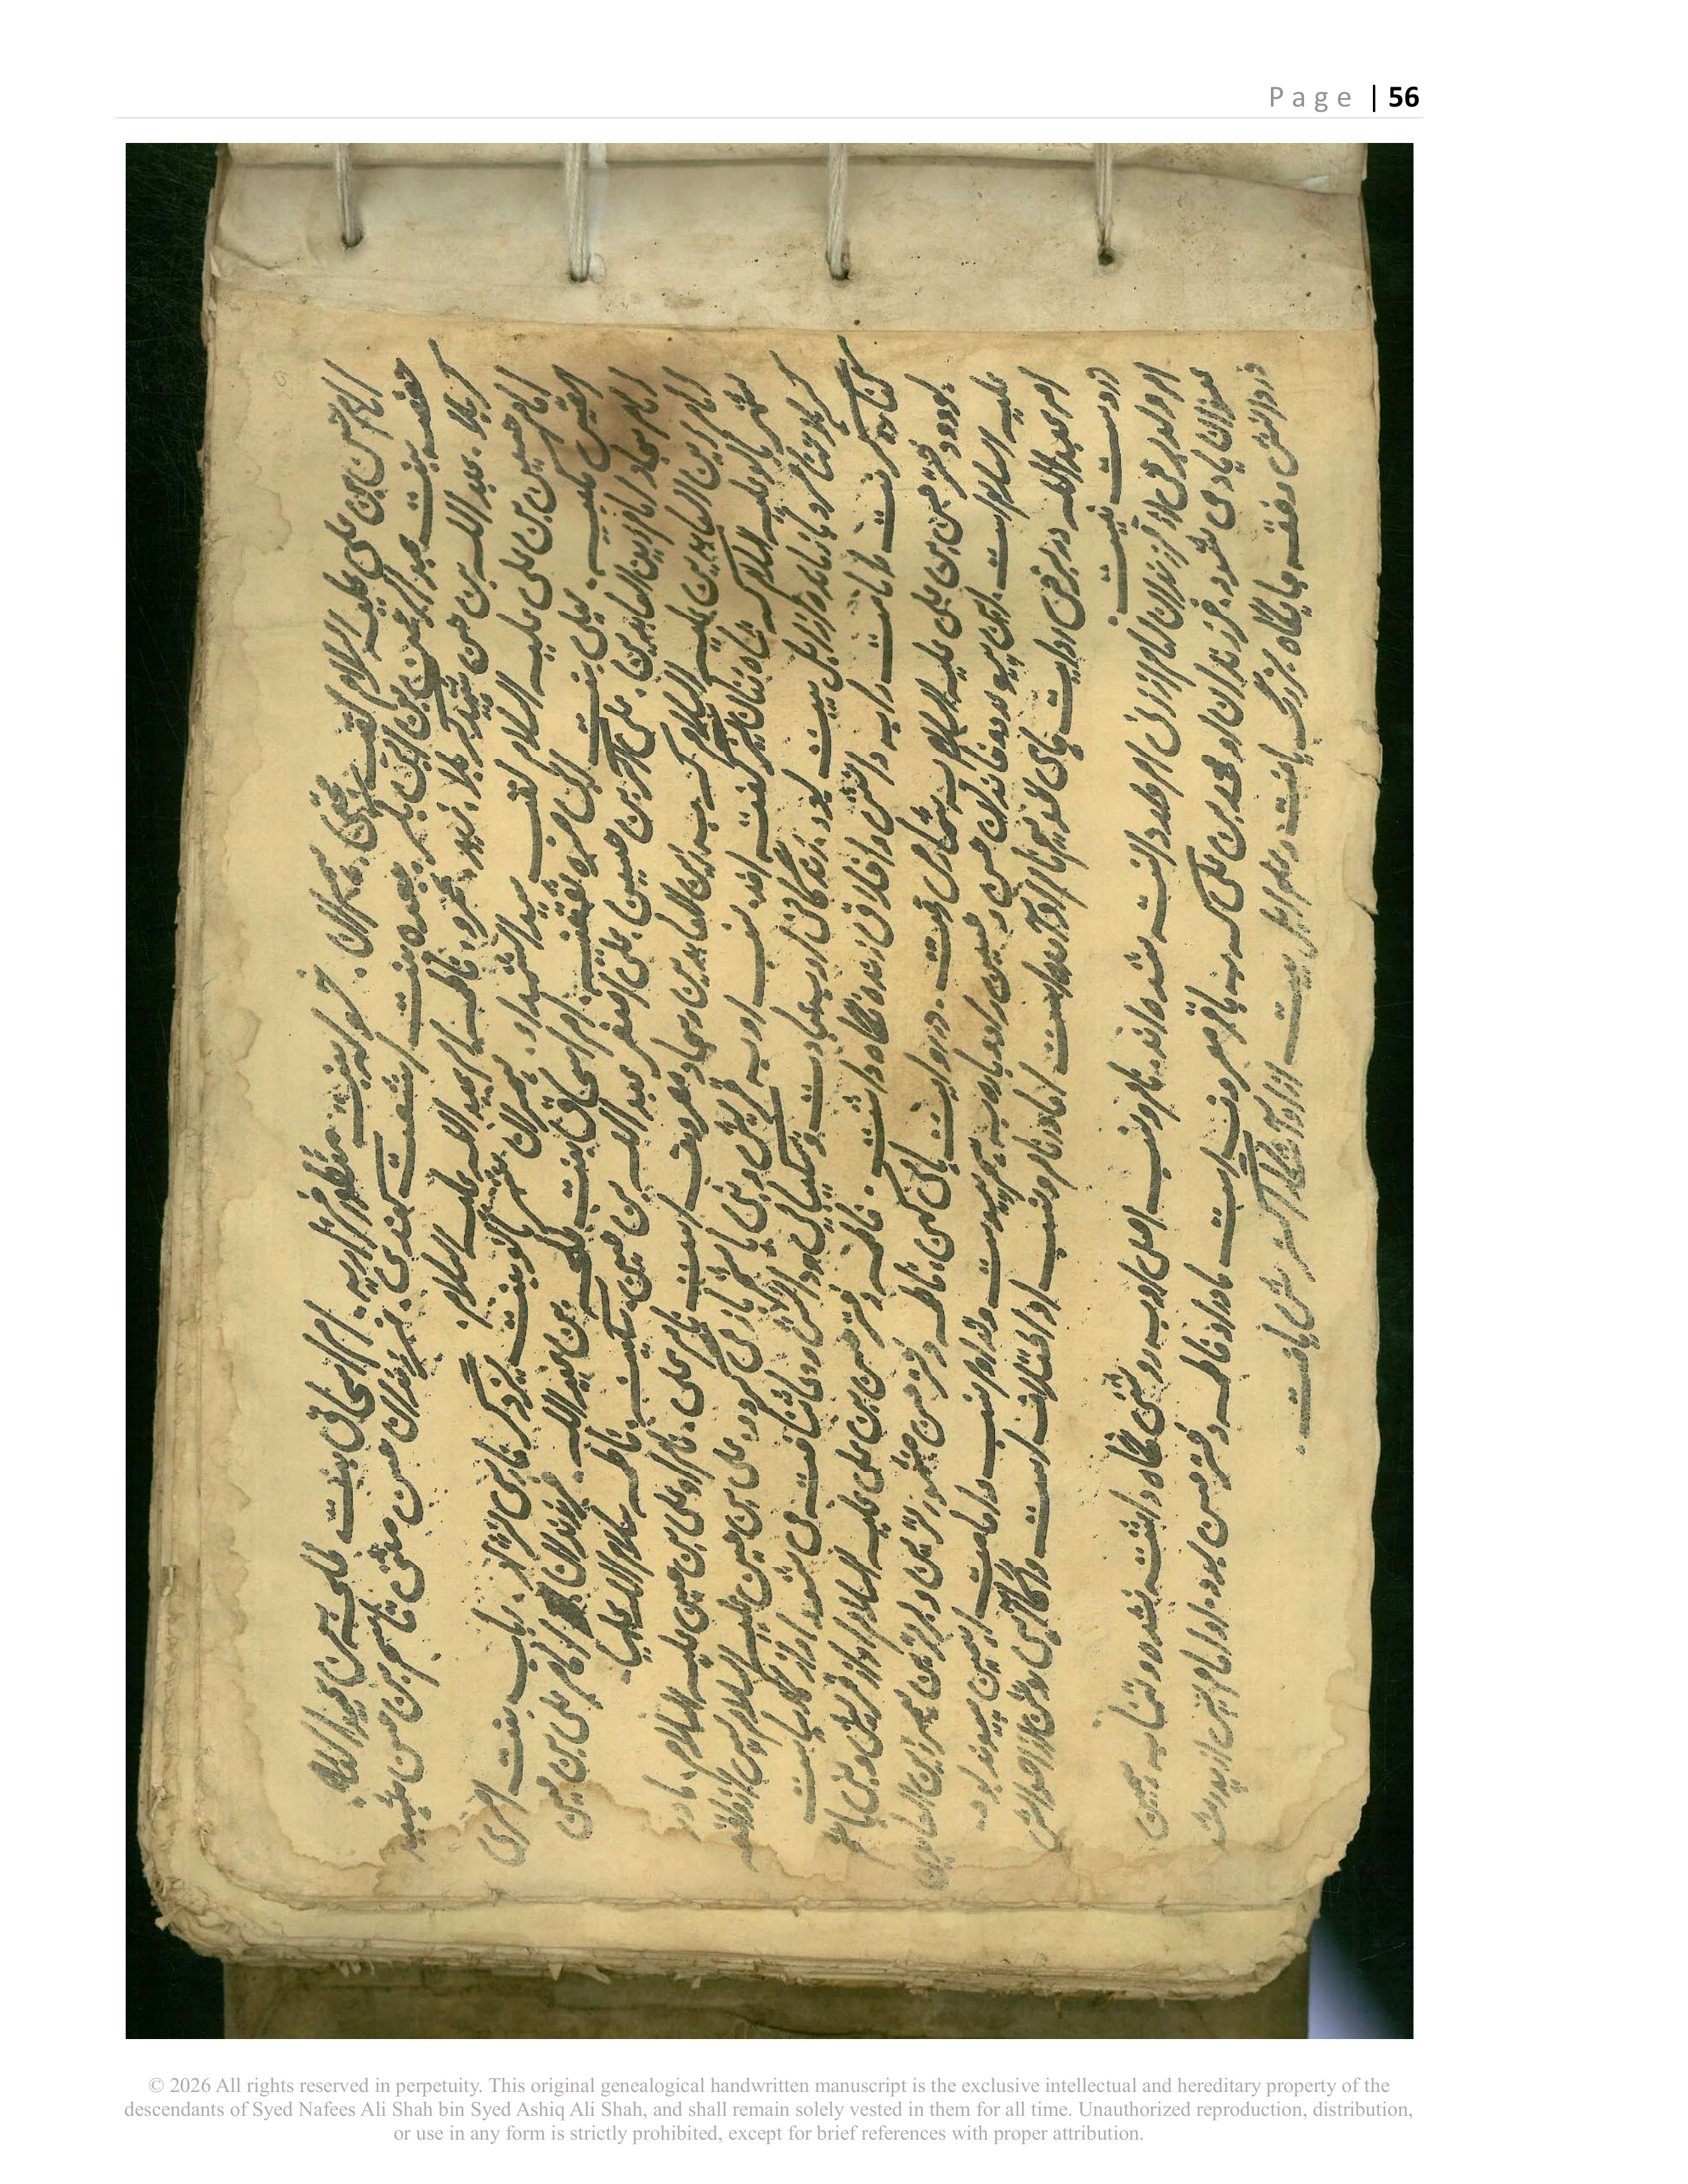 Page | 56
امام حسن بن علی علیه السلام لقب مجتبی. همسران. خوله بنت منظور فزاریه. ام اسحاق بنت طلحه بن عبید الله.
حفصه بنت عبد الرحمن بن ابی بکر. جعده بنت اشعث کندی. فرزندان حسن مثنی قاسم بن حسن شهید
کربلا. عبد الله بن حسن شهید کربلا. زید. عمرو. فاطمه ام عبد الله علیه السلام.
امام حسین بن علی علیه السلام لقب سید الشهداء. همسران شهربانو بنت یزدگرد پارسی نژاد. رباب بنت امری
القیس کلبیه. لیلی بنت ابی مره ثقفیه. ام اسحاق بنت طلحه بن عبید الله. فرزندان امام علی بن حسین
امام سجاد امام زین العابدین. علی اکبر بن حسین. علی اصغر عبد الله بن حسین. سکینه. فاطمه سلام الله علیها.
امام زین العابدین علیه السلام که به زین العابدین و سجاد معروف است نام علی. نام او علی بن حسین علیه السلام. مادر
شهربانو علیه السلام که شاه زنان نیز گفته اند. نسب او به قریش و بنی هاشم باز می گردد. علی بن حسین علیه السلام پس از واقعه
کربلا تنها مرد بازمانده از اهل بیت بود. زندگانی او به عبادت و شکیبایی و دانش شناخته می شود. او از
کناره گرفت تا امامت را به دانش و اخلاق زنده نگاه داشت. فاطمه دختر حسن بن علی علیه السلام او از قریش و بنی هاشم
بود و دختر حسن بن علی علیه السلام به شمار می رفت. در روایت های کهن، فاطمه دختر حسن مشهورترین و برترین همسر زین العابدین
علیه السلام است. این پیوند دو خاندان حسن و حسین را دوباره به هم پیوست و تداوم نسب و امامت از همین پیوند بود.
ام عبدالله در برخی روایت های کهن نیز نام او آمده است اما در نام و نسب او اختلاف است و آگاهی روشن از احوالش
در دست نیست.
ام ولد برخی از فرزندان امام از زنی ام ولد دانسته شده اند. نام و نسب اصلی او به روشنی نگاه داشته نشده و تنها به همین
عنوان یاد می شود. فرزندان او محمد بن علی که به باقر معروف است. مادر او فاطمه دختر حسن بود. او امام پس از پدر شد
و در دانش و فقه جایگاه بزرگی یافت و علم اهل بیت از او آشکار گسترش یافت.
© 2026 All rights reserved in perpetuity. This original genealogical handwritten manuscript is the exclusive intellectual and hereditary property of the
descendants of Syed Nafees Ali Shah bin Syed Ashiq Ali Shah, and shall remain solely vested in them for all time. Unauthorized reproduction, distribution,
or use in any form is strictly prohibited, except for brief references with proper attribution.